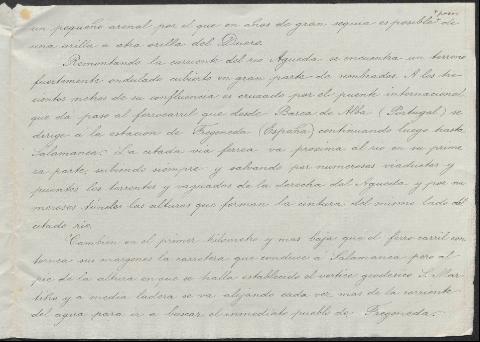 un pequeño arenal por el que en años de gran sequia es posible pasar de
una orilla a otra orilla del Duero.
Remontando la corriente del rio Agueda se encuentra un terreno
fuertemente ondulado cubierto en gran parte de sembrados. A los tres
cientos metros de su confluencia es cruzado por el puente internacional
que da paso al ferrocarril que desde Barca de Alba (Portugal) se
dirige a la estacion de Fregeneda (España) continuando luego hasta
Salamanca. La citada via ferrea va proxima al rio en su prime
ra parte, subiendo siempre y salvando por numerosos viaductos y
puentes los torrentes y vaguadas de la derecha del Agueda y por nu
merosos túneles las alturas que forman la cintura del mismo lado del
citado rio.
Tambien en el primer kilometro y mas baja que el ferro carril con
tornea sus margenes la carretera que conduce a Salamanca pero al
pie de la altura en que se halla establecido el vertice geodesico S. Mar
tiño y a media ladera se va alejando cada vez mas de la corriente
del agua para ir a buscar el inmediato pueblo de Fregeneda.